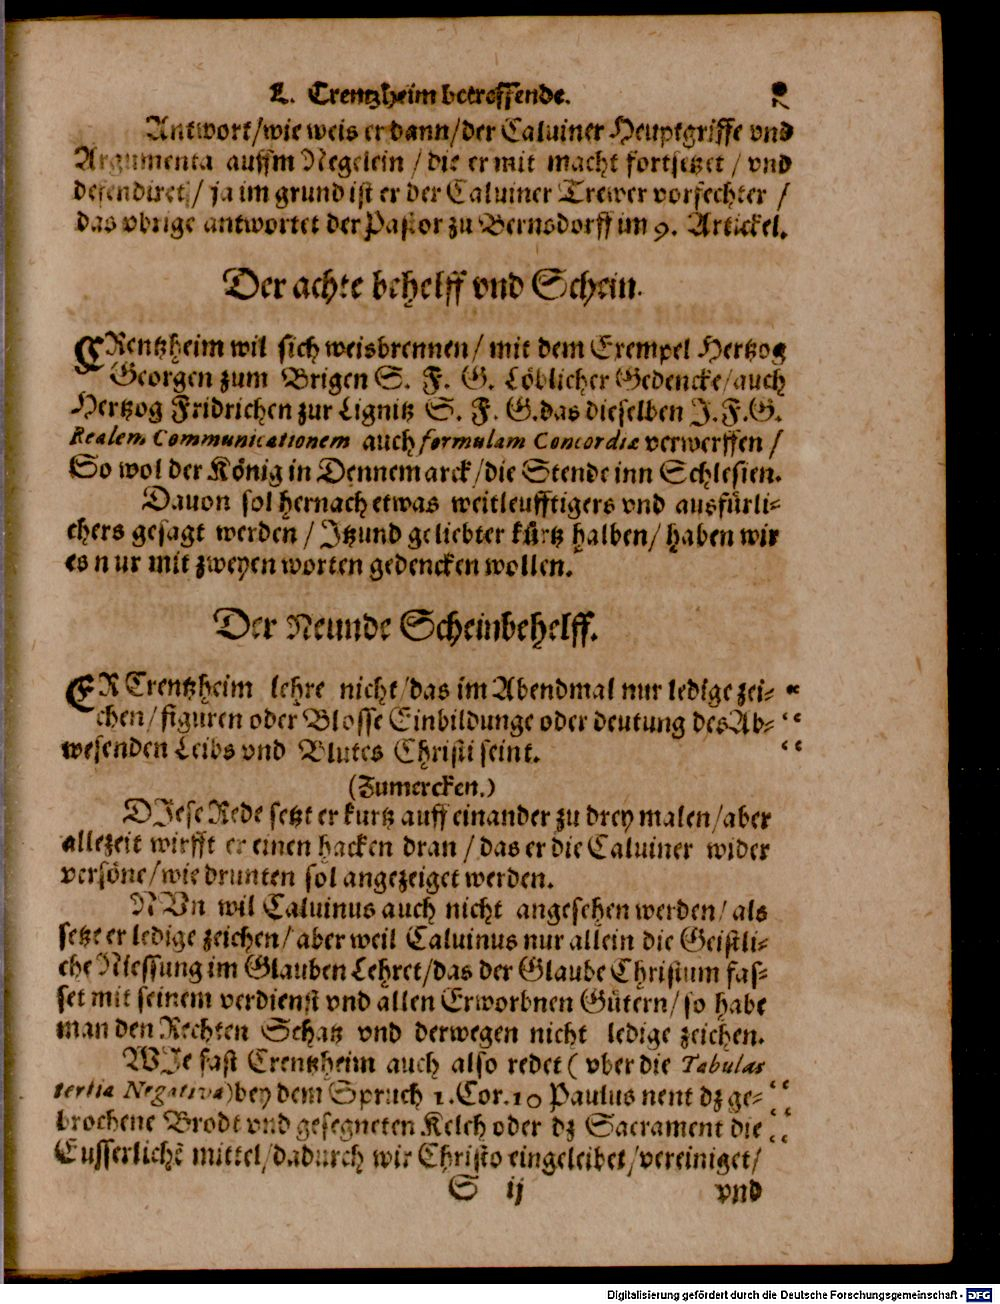 L. Crentzheim betreffende.
Antwort/wie weis er dann/der Caluiner Heuptgriffe vnd
Argumenta auffm Negelein/die er mit macht fortsetzet/vnd
defendiret/ja im grund ist er der Caluiner Trewer vorfechter/
das vbrige antwortet der Pastor zu Bernsdorff im 9. Artickel.
Der achte behelff vnd Schein.
CRentzheim wil sich weisbrennen/mit dem Exempel Hertzog
Georgen zum Brigen S. F. G. Löblicher Gedencke/auch
Hertzog Fridrichen zur Lignitz S. F. G. das dieselben J. F. G.
Realem Communicationem auch formulam Concordiæ verwerffen/
So wol der König in Dennemarck/die Stende inn Schlesien.
Dauon sol hernach etwas weitleufftigers vnd ausfürli-
chers gesagt werden/Jtzund geliebter kürtz halben/haben wir
es nur mit zweyen worten gedencken wollen.
Der Neunde Scheinbehelff.
ER Crentzheim lehre nicht/das im Abendmal nur ledige zei-
chen/figuren oder Blosse Einbildunge oder deutung des Ab-
wesenden Leibs vnd Blutes Christi seint.
(Zumercken.)
DJese Rede setzt er kurtz auff einander zu drey malen/aber
allezeit wirfft er einen hacken dran/das er die Caluiner wider
versöne/wie drunten sol angezeiget werden.
NVn wil Caluinus auch nicht angesehen werden/als
setze er ledige zeichen/aber weil Caluinus nur allein die Geistli-
che Niessung im Glauben Lehret/das der Glaube Christum fas-
set mit seinem verdienst vnd allen Erworbnen Gütern/so habe
man den Rechten Schatz vnd derwegen nicht ledige zeichen.
WJe fast Crentzheim auch also redet (vber die Tabulas
tertia Negativa) bey dem Spruch 1. Cor. 10 Paulus nent dz ge-
brochene Brodt vnd gesegneten Kelch oder dz Sacrament die
Eusserlichē mittel/dadurch wir Christo eingeleibet/vereiniget/
S ij
vnd
Digitalisierung gefördert durch die Deutsche Forschungsgemeinschaft - DFG